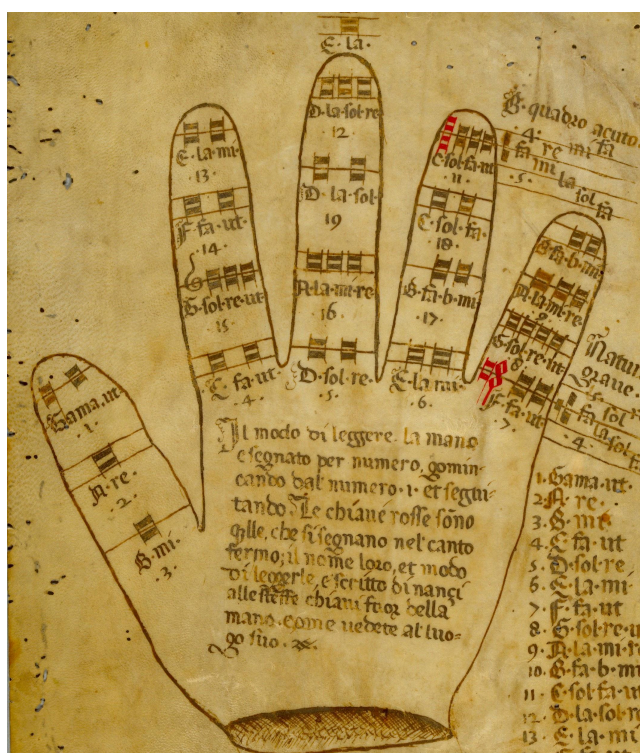 E.la.
D.la.sol.re
.12.
D.la.sol
19
A.la.mi.re
.16.
D.sol.re.
.5.
E.la.mi.
.13.
F.fa.ut
.14.
G.sol.re.ut
.15.
C.fa.ut
.4.
C.sol.fa.ut
.11.
C.sol.fa.
.18.
B.fa.b.mi
.17.
E.la.mi.
.6.
B.fa.b.mi
A.la.mi.re
G.sol.re.ut
8
F.fa.ut
.7.
Gama.ut
.1.
A.re.
.2.
B.mi.
.3.
B. quadro acuto
.4.
fa re mi fa
.5.
mi la sol fa
Natura
grave.
fa sol
la sol fa
.4.
Il modo di leggere la mano
e segnato per numero, comin-
cando dal numero .1. et segui-
tando. Le chiave rosse sono
qlle, che si segnano nel canto
fermo; il nome loro, et modo
di leggerle, e scritto dinanci
alle stesse chiavi fuor della
mano, come vedete al luo-
go suo.
1. Gama.ut.
2. A.re.
3. B.mi
4. C.fa.ut
5. D.sol.re
6. E.la.mi
7. F.fa.ut
8. G.sol.re.u
9. A.la.mi.r
10. B.fa.b.m
11. C.sol.fa.u
12. D.la.sol.r
13. E.la.mi